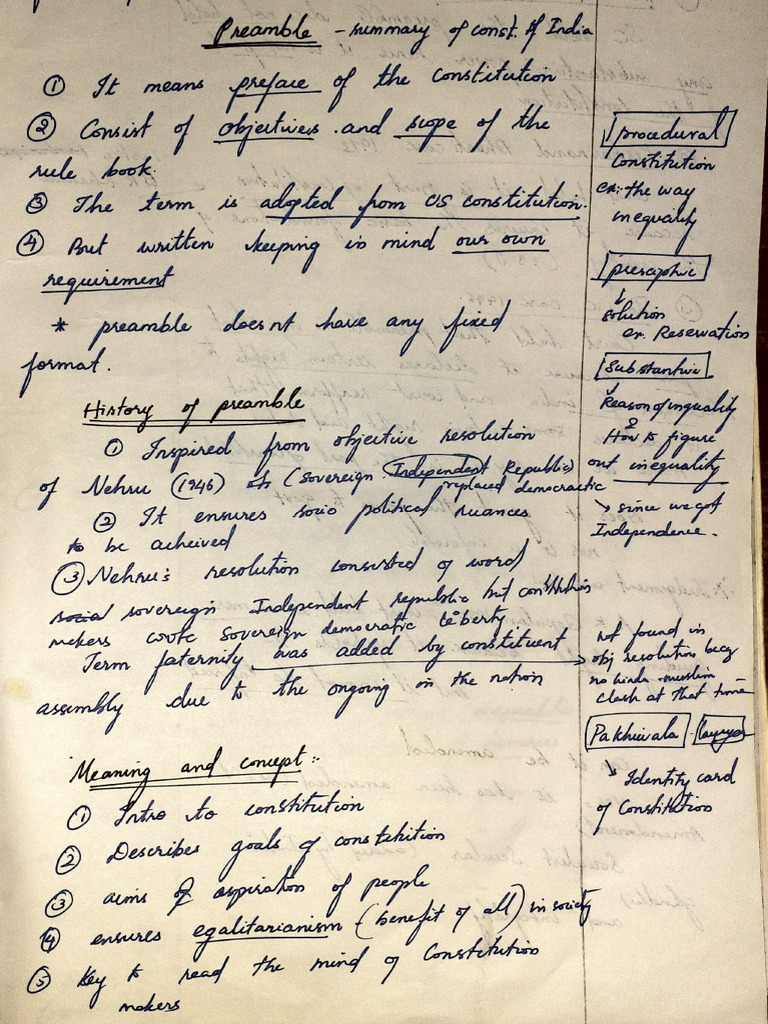 Preamble - summary of const. of India
① It means preface of the constitution
② Consist of objectives and scope of the
rule book.
③ The term is adopted from US constitution.
④ But written keeping in mind our own
requirement
* preamble doesnt have any fixed
format.
History of preamble
① Inspired from objective resolution
of Nehru (1946) (sovereign Independent Republic)
replaced democractic
② It ensures socio political nuances
to be acheived
③ Nehru's resolution consisted of word
social sovereign Independent republic but constitution
makers wrote sovereign democratic liberty
Term faternity was added by constituent
assembly due to the ongoing in the nation
Meaning and concept :-
① Intro to constitution
② Describes goals of constitution
③ aims & aspiration of people
④ ensures egalitarianism (benefit of all) in society
⑤ Key to read the mind of Constitution
makers
procedural
Constitution
ex:- the way
inequality
prescriphive
solution
ex. Reservation
Substantive
Reason of inquality
?
How to figure
out inequality
→ since we got
Independence.
Not found in
obj resolution becz
no hindu-muslim
clash at that time
Palkhiwala lawyer
Identity card
of Constitution